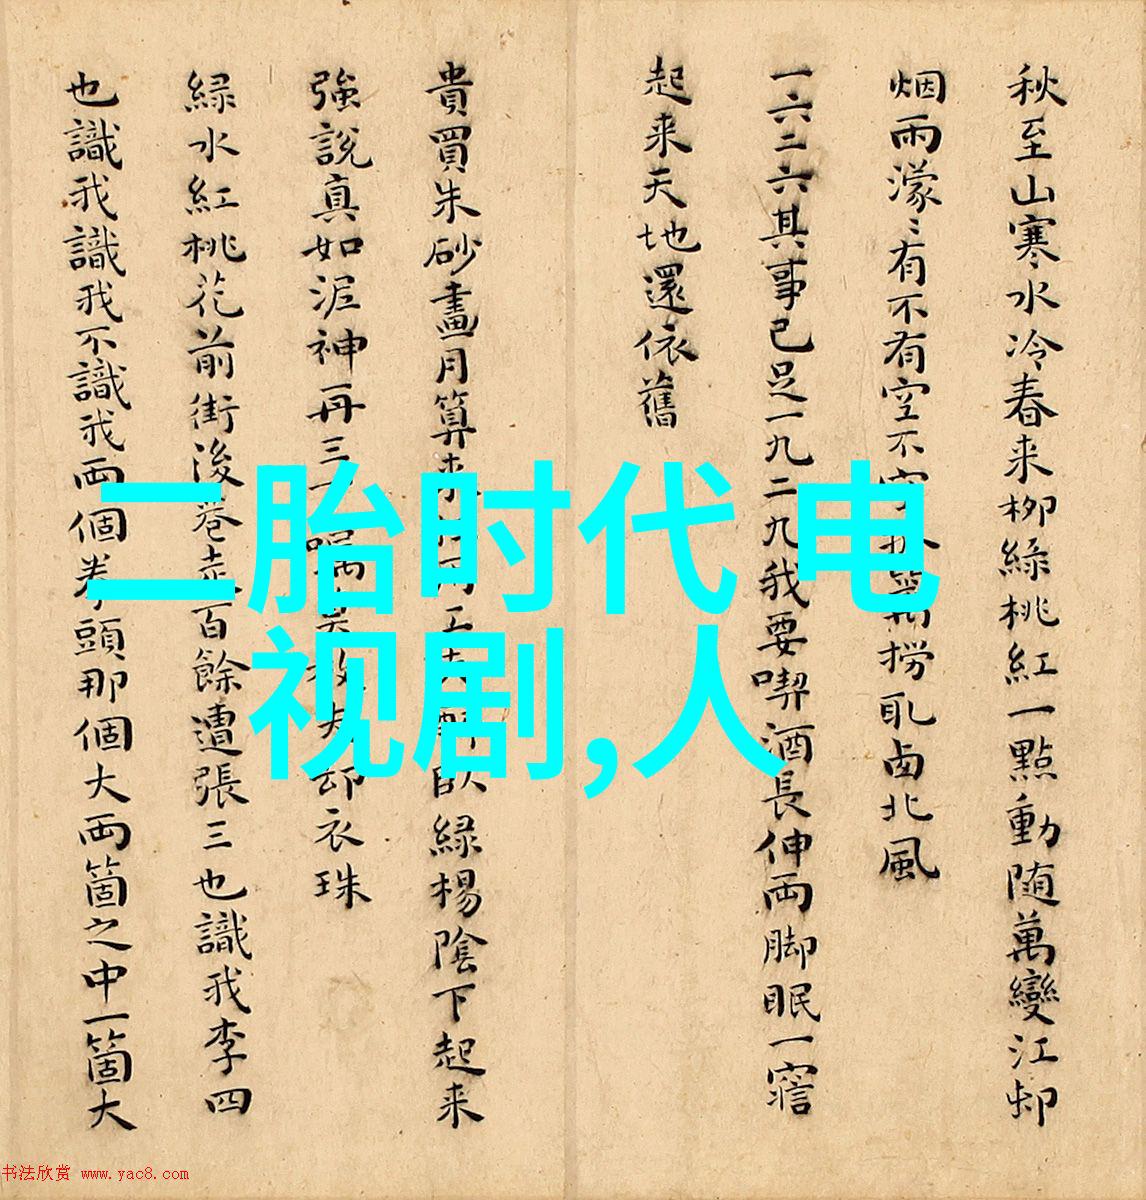 秋至山寒水冷春来柳緑桃紅一點動随萬變江邨
烟雨濛〻有不有空不空 撈取西北風
一六二六其事已足一九二九我要喫酒長伸両脚眠一寤
起来天地還依舊
貴買朱砂畫月算来 臥緑楊陰下起来
強説真如泥神再三 却衣珠
緑水紅桃花前街後巷走百餘遭張三也識我李四
也識我識我不識我両個拳頭那個大両箇之中一箇大
二胎时代 电
视剧,人
书法欣赏 www.yac8.com